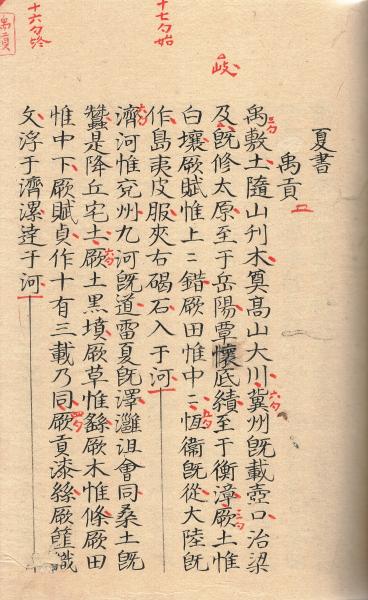 十七夕始
十六夕終
禹貢
岐
夏書
禹貢
禹敷土隨山刋木奠高山大川冀州旣載壺口治梁
及旣修太原至于岳陽覃懷厎績至于衡漳厥土惟
白壤厥賦惟上二錯厥田惟中二恆衞旣從大陸旣
作島夷皮服夾右碣石入于河
濟河惟兖州九河旣道雷夏旣澤灉沮會同桑土旣
蠶是降丘宅土厥土黑墳厥草惟繇厥木惟條厥田
惟中下厥賦貞作十有三載乃同厥貢漆絲厥篚織
文浮于濟漯達于河